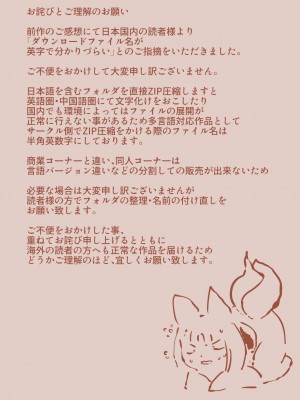 お詫びとご理解のお願い
前作のご感想にて日本国内の読者様より
「ダウンロードファイル名が
英字で分かりづらい」とのご指摘をいただきました。
ご不便をおかけして大変申し訳ございません。
日本語を含むフォルダを直接ZIP圧縮しますと
英語圏・中国語圏にて文字化けをおこしたり
国内でも環境によってはファイルの展開が
正常に行えない事があるため多言語対応作品として
サークル側でZIP圧縮をかける際のファイル名は
半角英数字にしております。
商業コーナーと違い、同人コーナーは
言語バージョン違いなどの分割しての販売が出来ないため
必要な場合は大変申し訳ございませんが
読者様の方でフォルダの整理・名前の付け直しを
お願い致します。
ご不便をおかけした事、
重ねてお詫び申し上げるとともに
海外の読者の方へも正常な作品を届けるため
どうかご理解のほど、宜しくお願い致します。